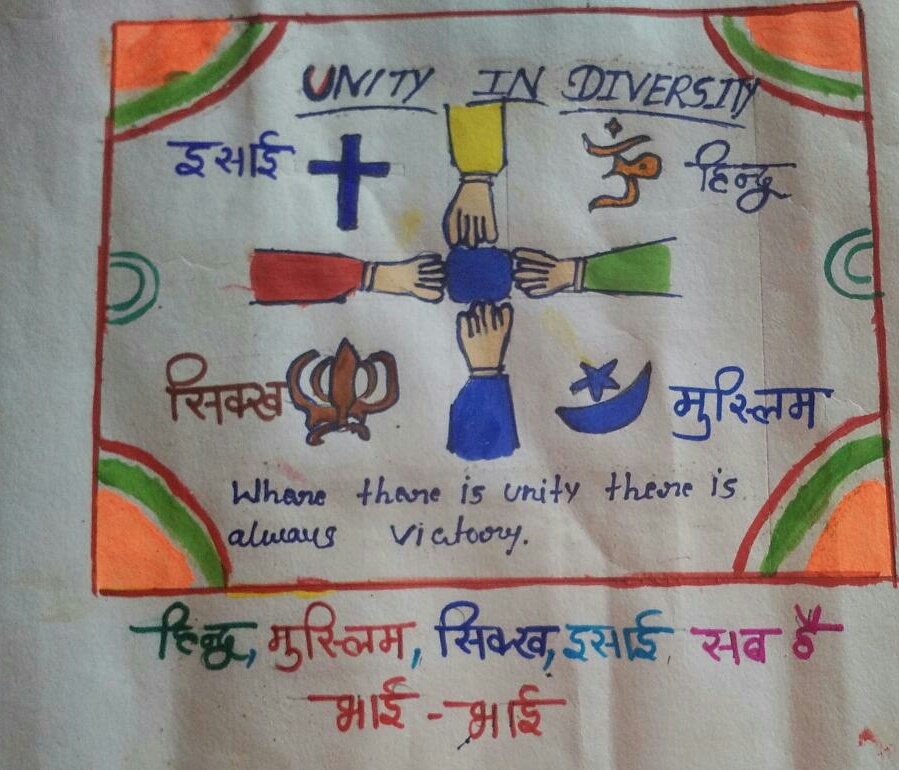 UNITY IN DIVERSITY
इसाई
हिन्दू
सिक्ख
मुस्लिम
Where there is unity there is
always victoory.
हिन्दू, मुस्लिम, सिक्ख, इसाई सब है
भाई - भाई